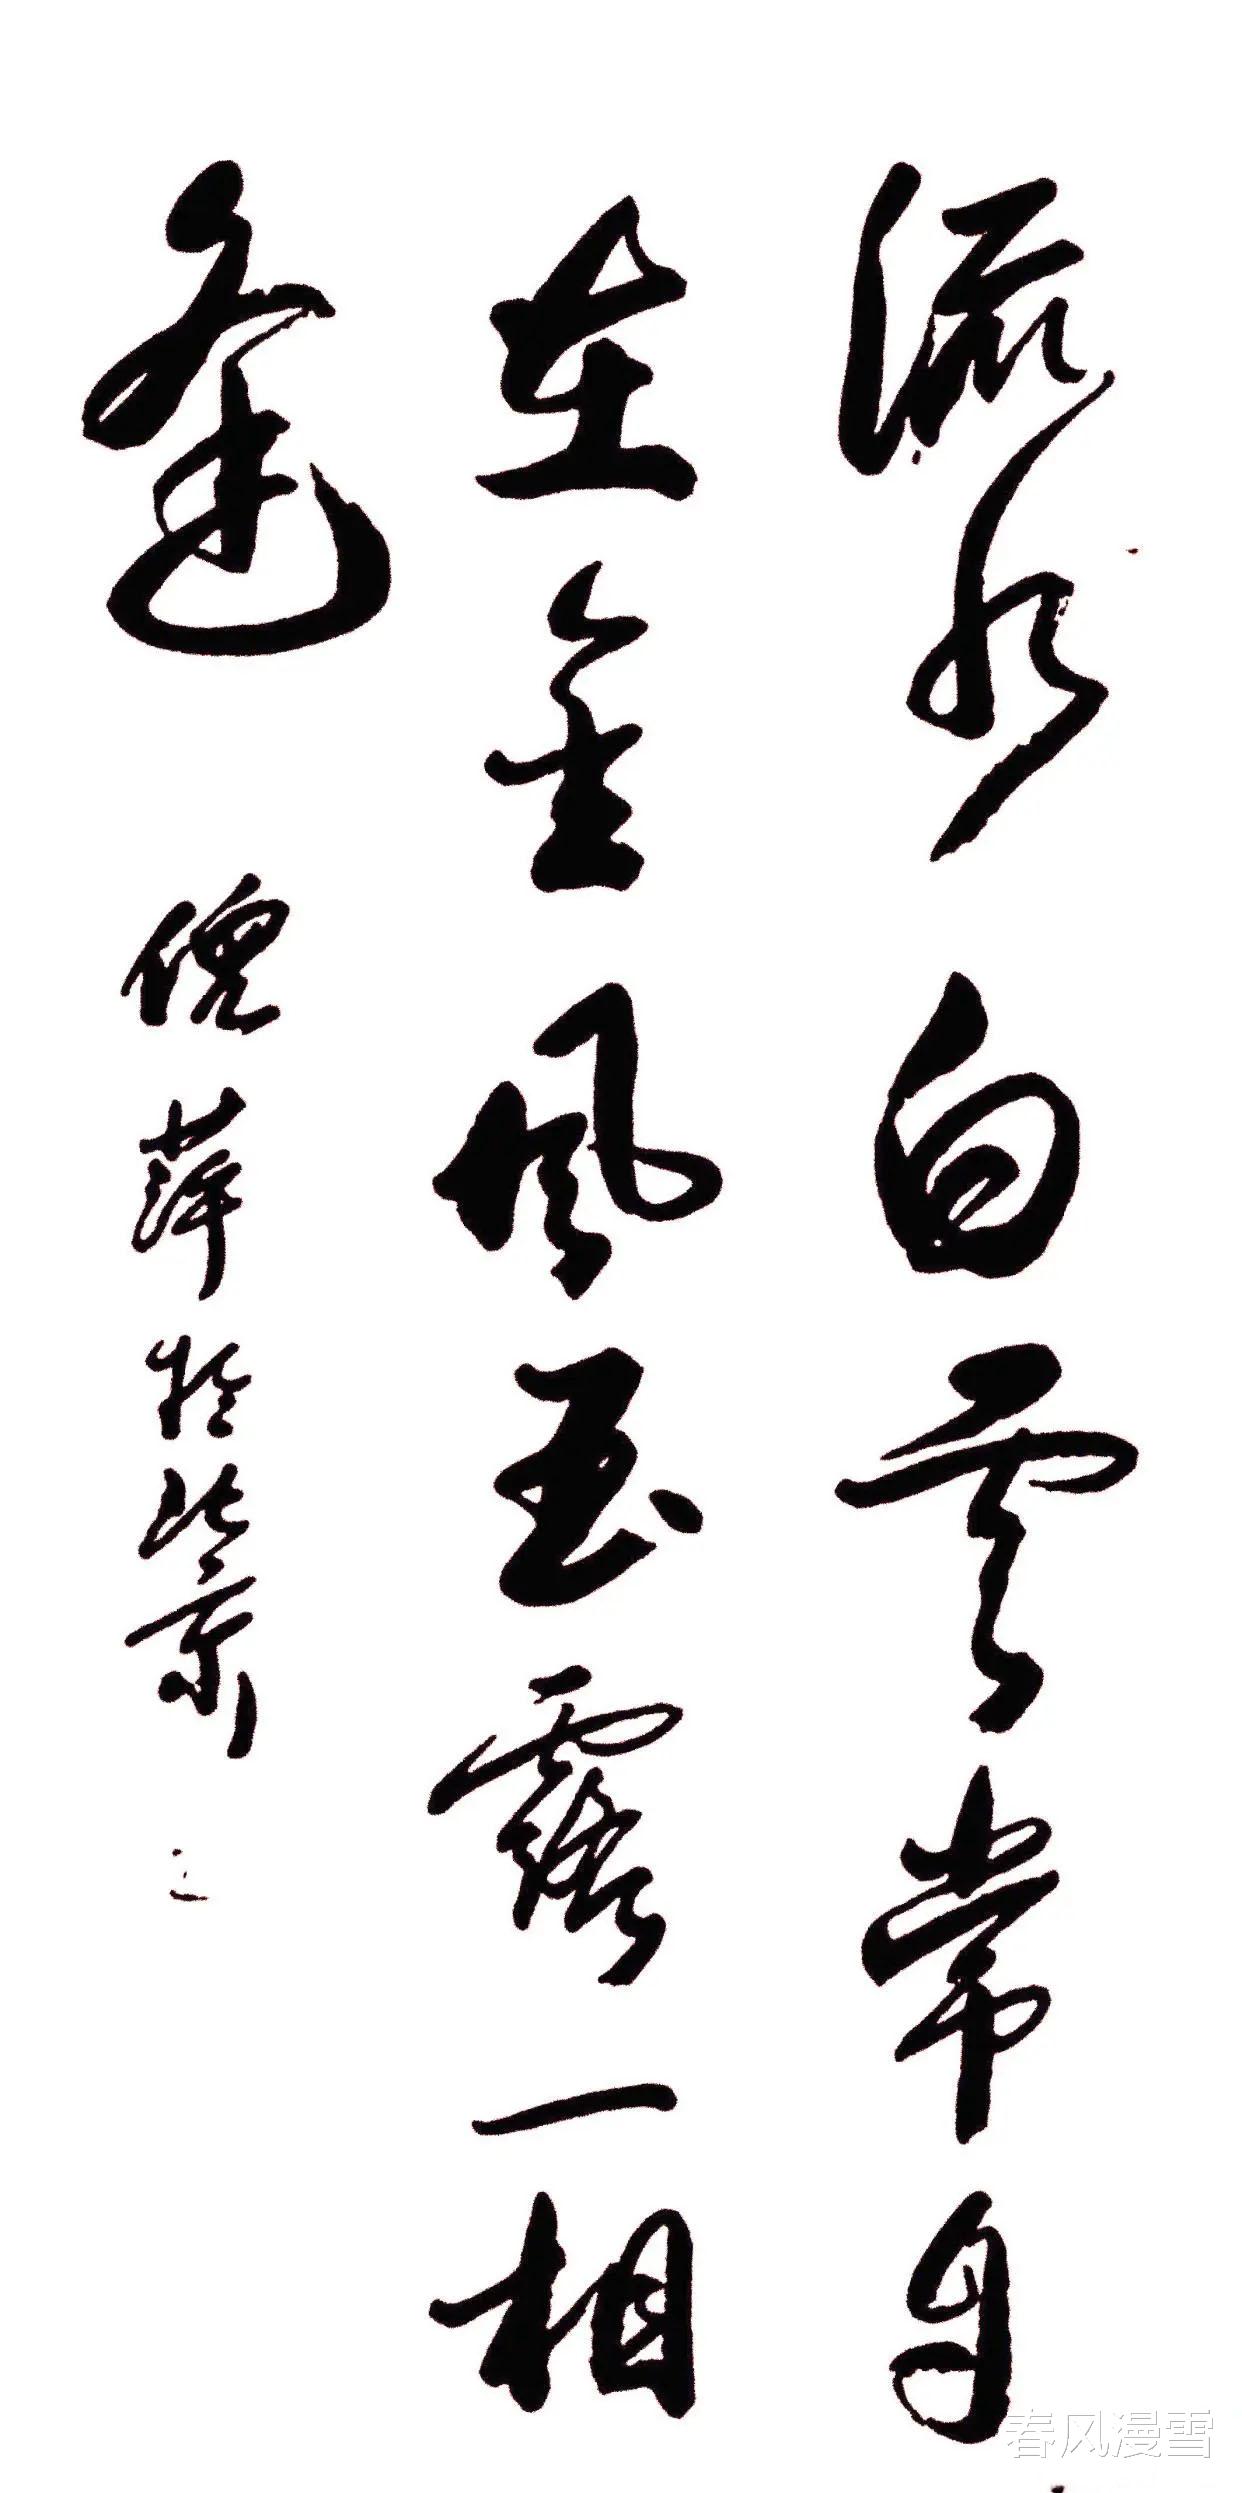 流水白云常自
在金风玉露一相
逢 倪萍於北京
春风漫雪